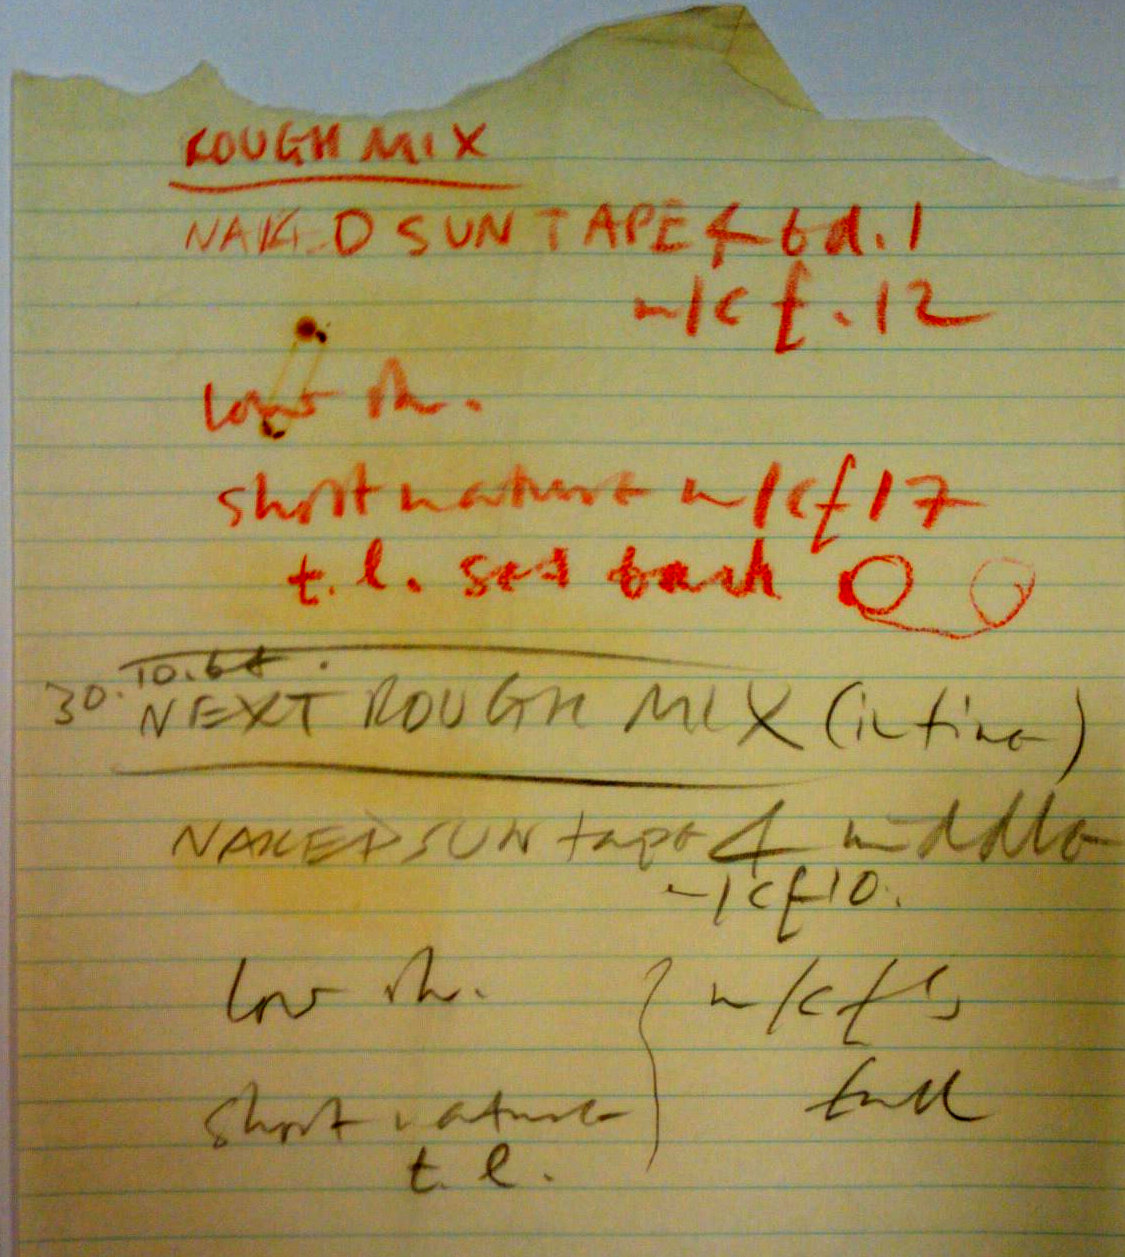 ROUGH MIX
NAKED SUN TAPE 4 bd. 1
w/cf. 12
love
short nature w/cf 17
t.l. set back
30.10.68.
NEXT ROUGH MIX (in time)
NAKED SUN tape 4 middle
w/cf 10.
love
w/cf
short nature
t.l.